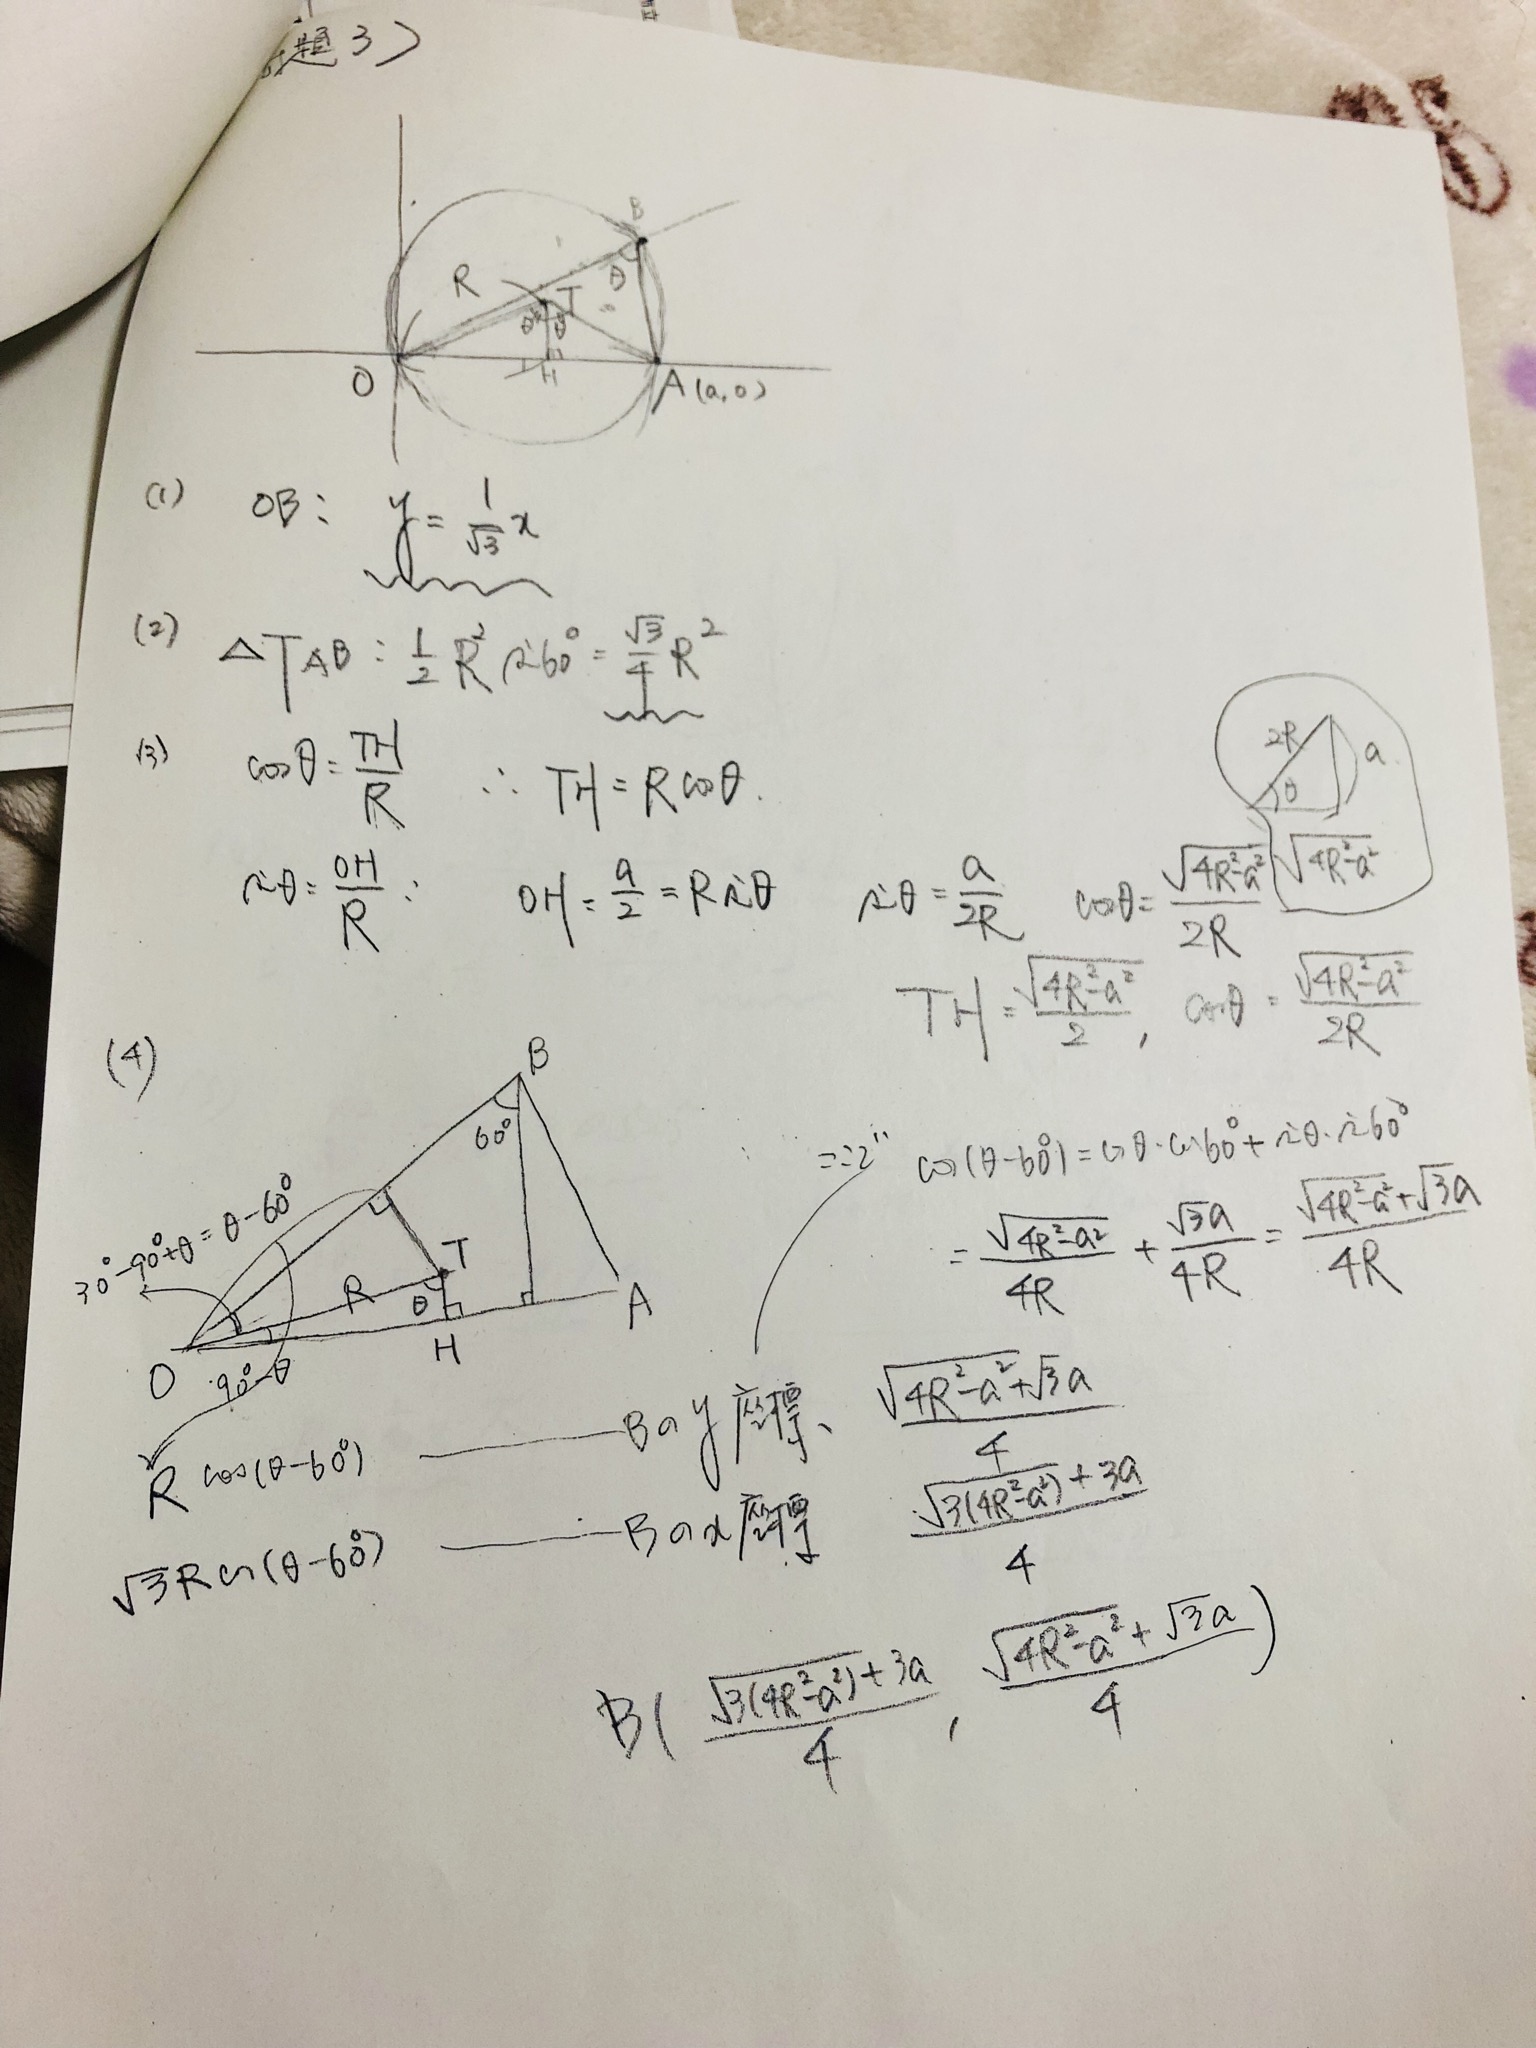 題3)
B
R
T
θ
θ θ
O
H
A(a,0)
(1) OB: y=1/√3 x
(2) △TAB: 1/2 R² sin60°=√3/4 R²
(3) cosθ=TH/R ∴ TH=Rcosθ.
2R
a
θ
√4R²-a²
sinθ=OH/R: OH=a/2=Rsinθ sinθ=a/2R cosθ=√4R²-a²/2R
TH=√4R²-a²/2, cosθ=√4R²-a²/2R
(4)
B
60°
30°-90°+θ=θ-60°
T
R
θ
O
H
A
90°-θ
ここで" cos(θ-60°)=cosθ·cos60°+sinθ·sin60°
=√4R²-a²/4R+√3a/4R=√4R²-a²+√3a/4R
Rcos(θ-60°) Bのy座標、 √4R²-a²+√3a/4
√3Rcos(θ-60°) Bのx座標 √3(4R²-a²)+3a/4
B(√3(4R²-a²)+3a/4, √4R²-a²+√3a/4)